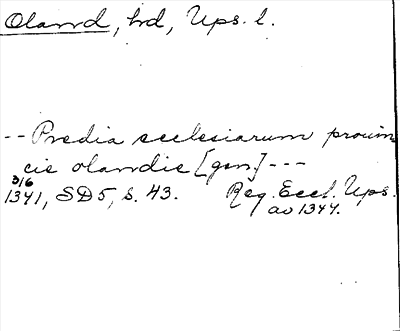 Oland, hd, Ups. l.
-- Predia ecclesiarum prouin
cie olandie [gen.] ---
3/6
1341, SD5, s. 43. Reg. Eccl. Ups.
av 1344.